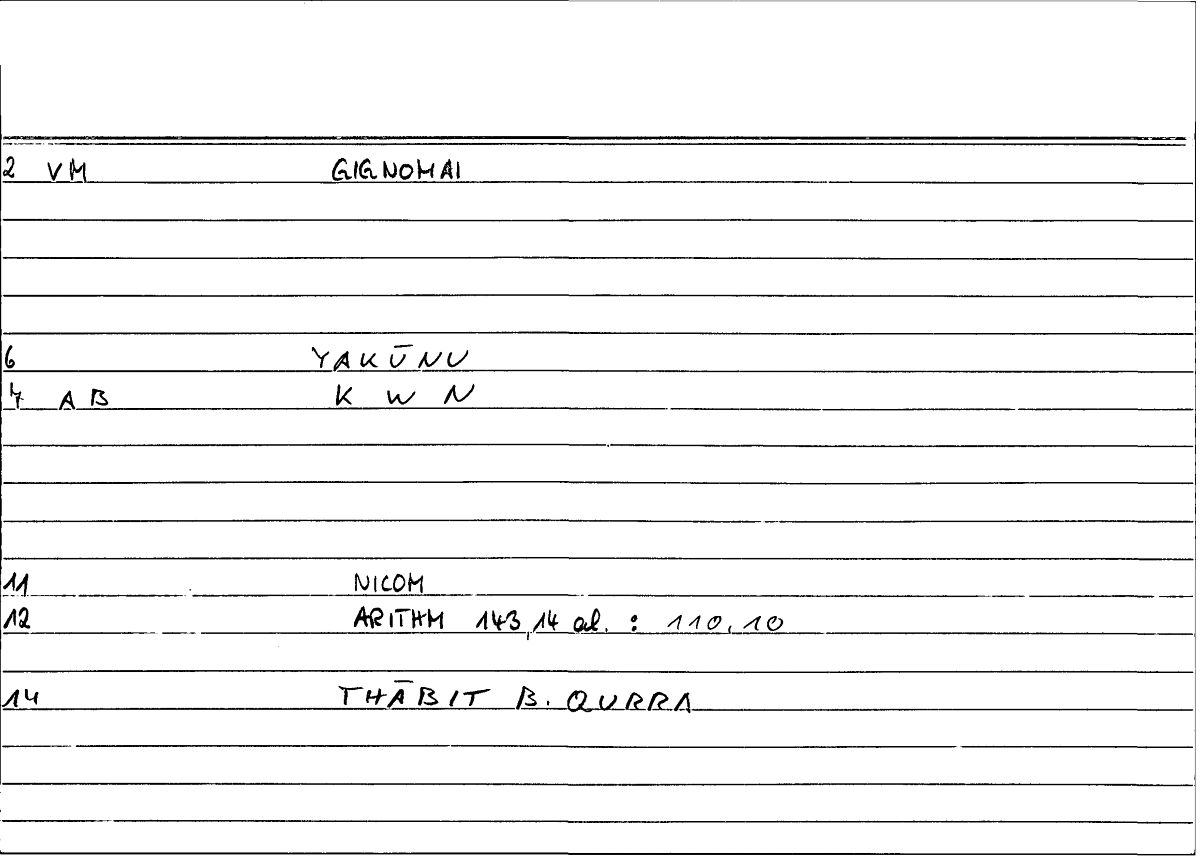 2 VM GIGNOMAI
6 YAKŪNU
7 AB K W N
11 NICOM
12 ARITHM 143,14 al. : 110,10
14 THĀBIT B. QURRA